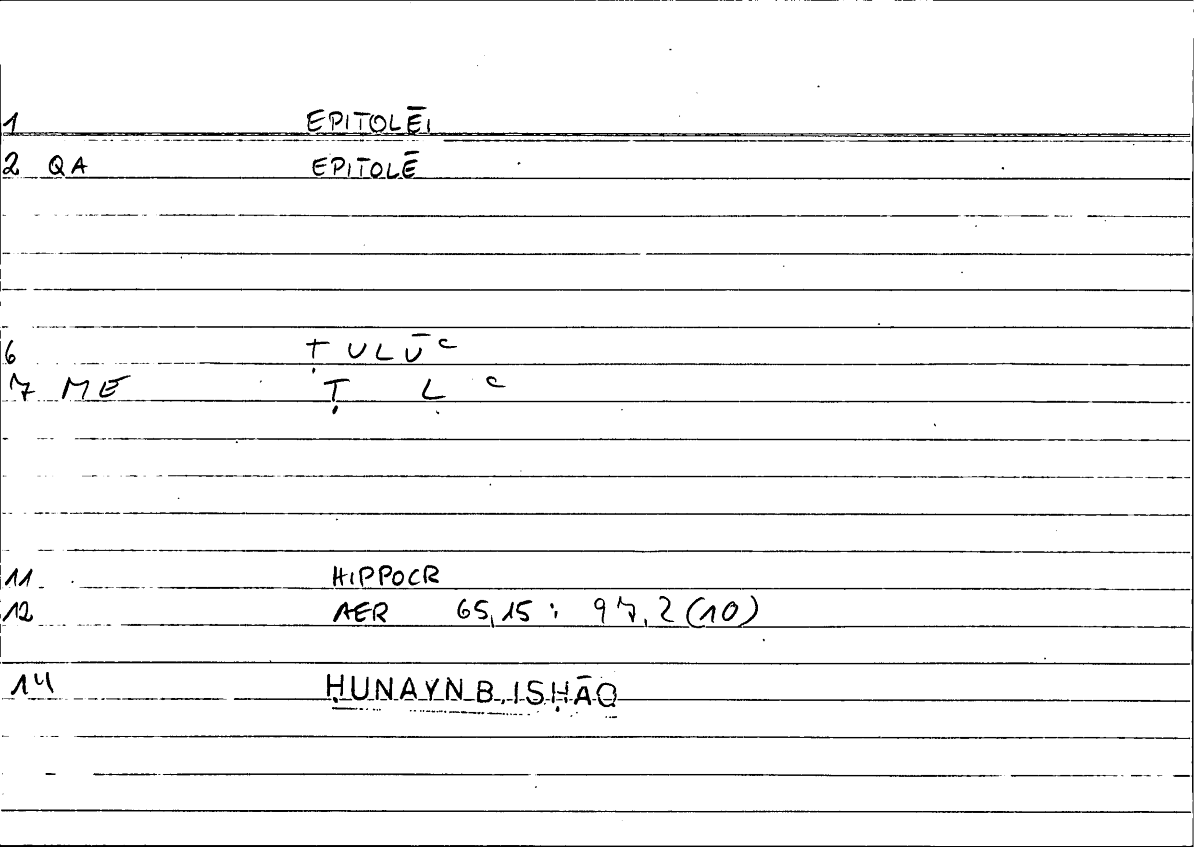 1 EPITOLĒI
2 QA EPITOLĒ
6 ṬULŪʿ
7 ME Ṭ L ʿ
11 HIPPOCR
12 AER 65,15 : 97,2 (10)
14 ḤUNAYN B. ISḤĀQ